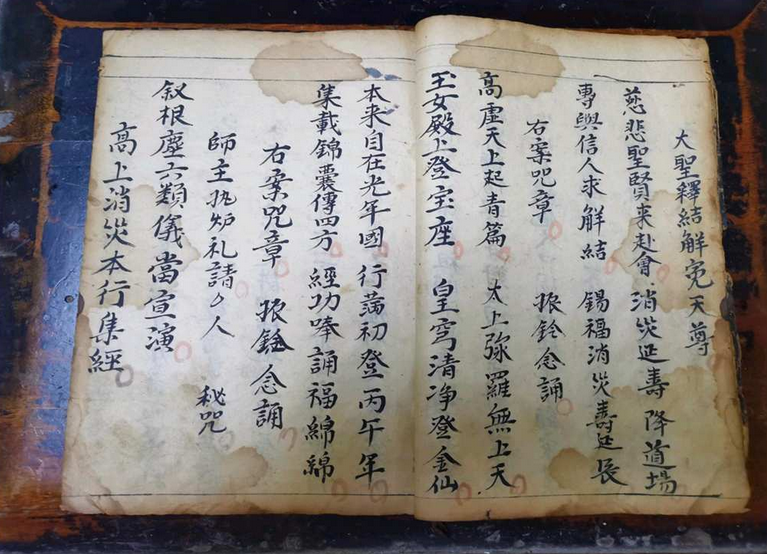 大聖釋結解寃天尊
慈悲聖賢来赴會 消災延壽降道場
專與信人求解結 錫福消災壽延長
右案咒章 振鈴念誦
高虛天上起青篇 太上弥羅無上天
玉女殿上登宝座 皇穹清净登金仙
本来自在光年國 行满初登丙午年
集載錦囊傳四方 經功唪誦福綿綿
右案咒章 振鈴念誦
師主执炉礼請 人 秘咒
叙根塵六類儀當宣演
高上消災本行集經